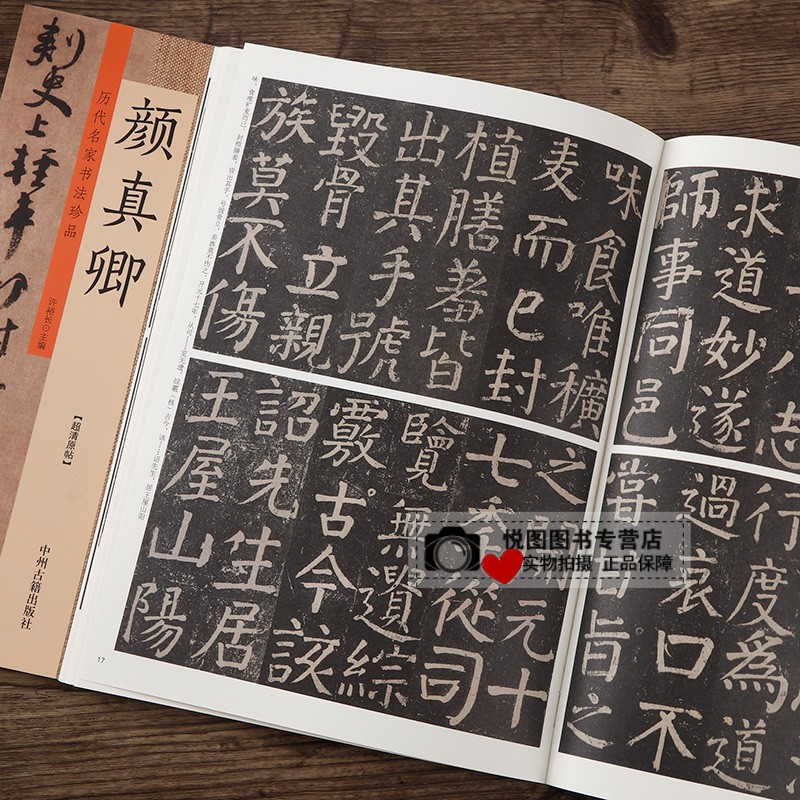 刺史上輕車
历代名家书法珍品
颜真卿
许裕长⊙主编
【超清原帖】
中州古籍出版社
求道妙遂
師事同邑
行度爲道
過哀口不
旨之
味食唯穬
麦而已封
植膳蓄皆
出其手號
毀骨立親
族莫不傷
之開元十
七年從司
覽無遺綜
覈古今該
詔先生居
王屋山陽
17
悦图图书专营店
实物拍摄 正品保障